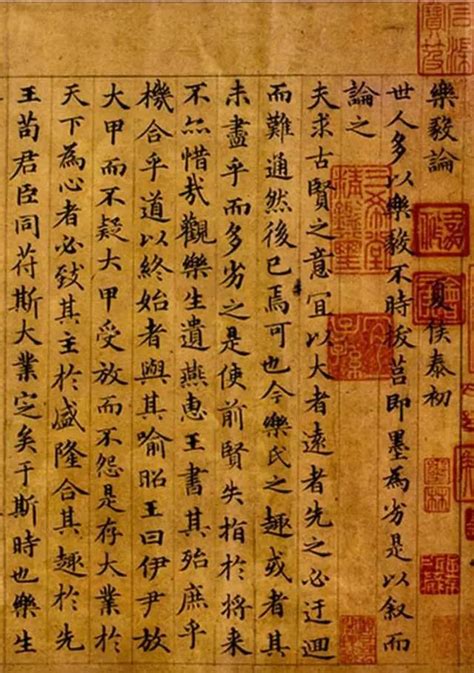 樂毅論 夏侯泰初
世人多以樂毅不時拔莒即墨為劣是以叙而
論之
夫求古賢之意宜以大者遠者先之必迂迴
而難通然後已焉可也今樂氏之趣或者其
未盡乎而多劣之是使前賢失指於將来
不亦惜哉觀樂生遺燕惠王書其殆庶乎
機合乎道以終始者與其喻昭王曰伊尹放
大甲而不疑大甲受放而不怨是存大業於
天下為心者必致其主於盛隆合其趣於先
王苟君臣同苻斯大業定矣于斯時也樂生
三希堂精鑑璽
宜子孫